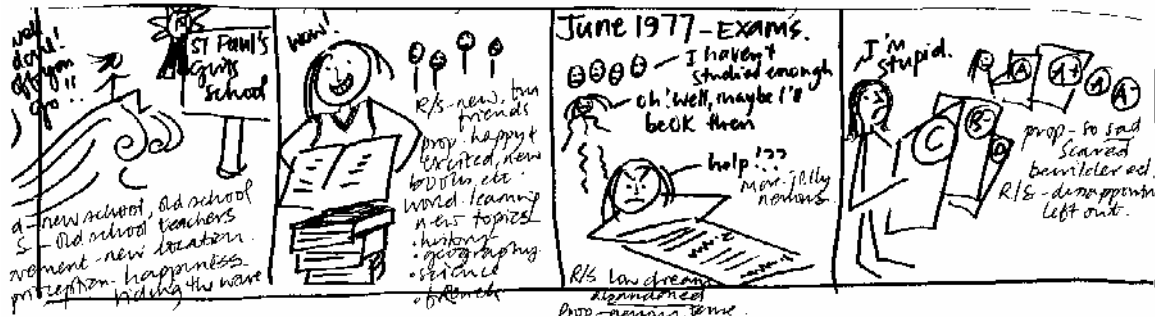 well
done!
off you
go..
St Paul's
girls
school
a-new school, old school
S-old school teachers
vement-new location.
perception-happiness
riding the wave
wow!
R/S-new, tun
friends
prop. happy &
excited, new
books, etc.
world. learning
new topics
• history
• geography
• science
• french
June 1977-EXAM'S.
I haven't
studied enough
oh! well, maybe I'll
be OK then
help!??
more-jelly
nervous.
R/S low dream
abandoned
prop-
I'm
stupid.
A
A+
A
A-
B-
C
prop-so sad
scared
bewildered.
R/S-disappointm
left out.